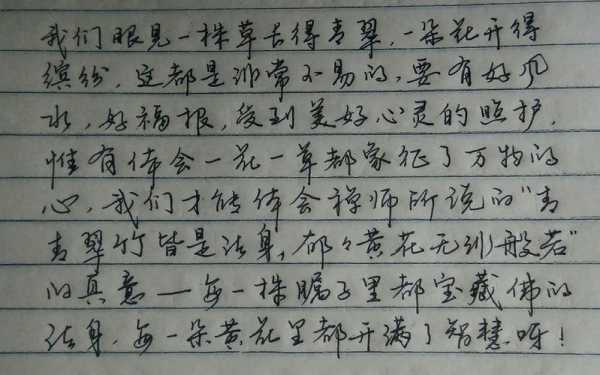 我们眼见一株草长得青翠,一朵花开得
缤纷,这都是非常不易的,要有好风
水,好福报,受到美好心灵的照护,
惟有体会一花一草都象征了万物的
心,我们才能体会禅师所说的“青
青翠竹皆是法身,郁々黄花无非般若”
的真意——每一株 里都宝藏佛的
法身,每一朵黄花里都开满了智慧呀!